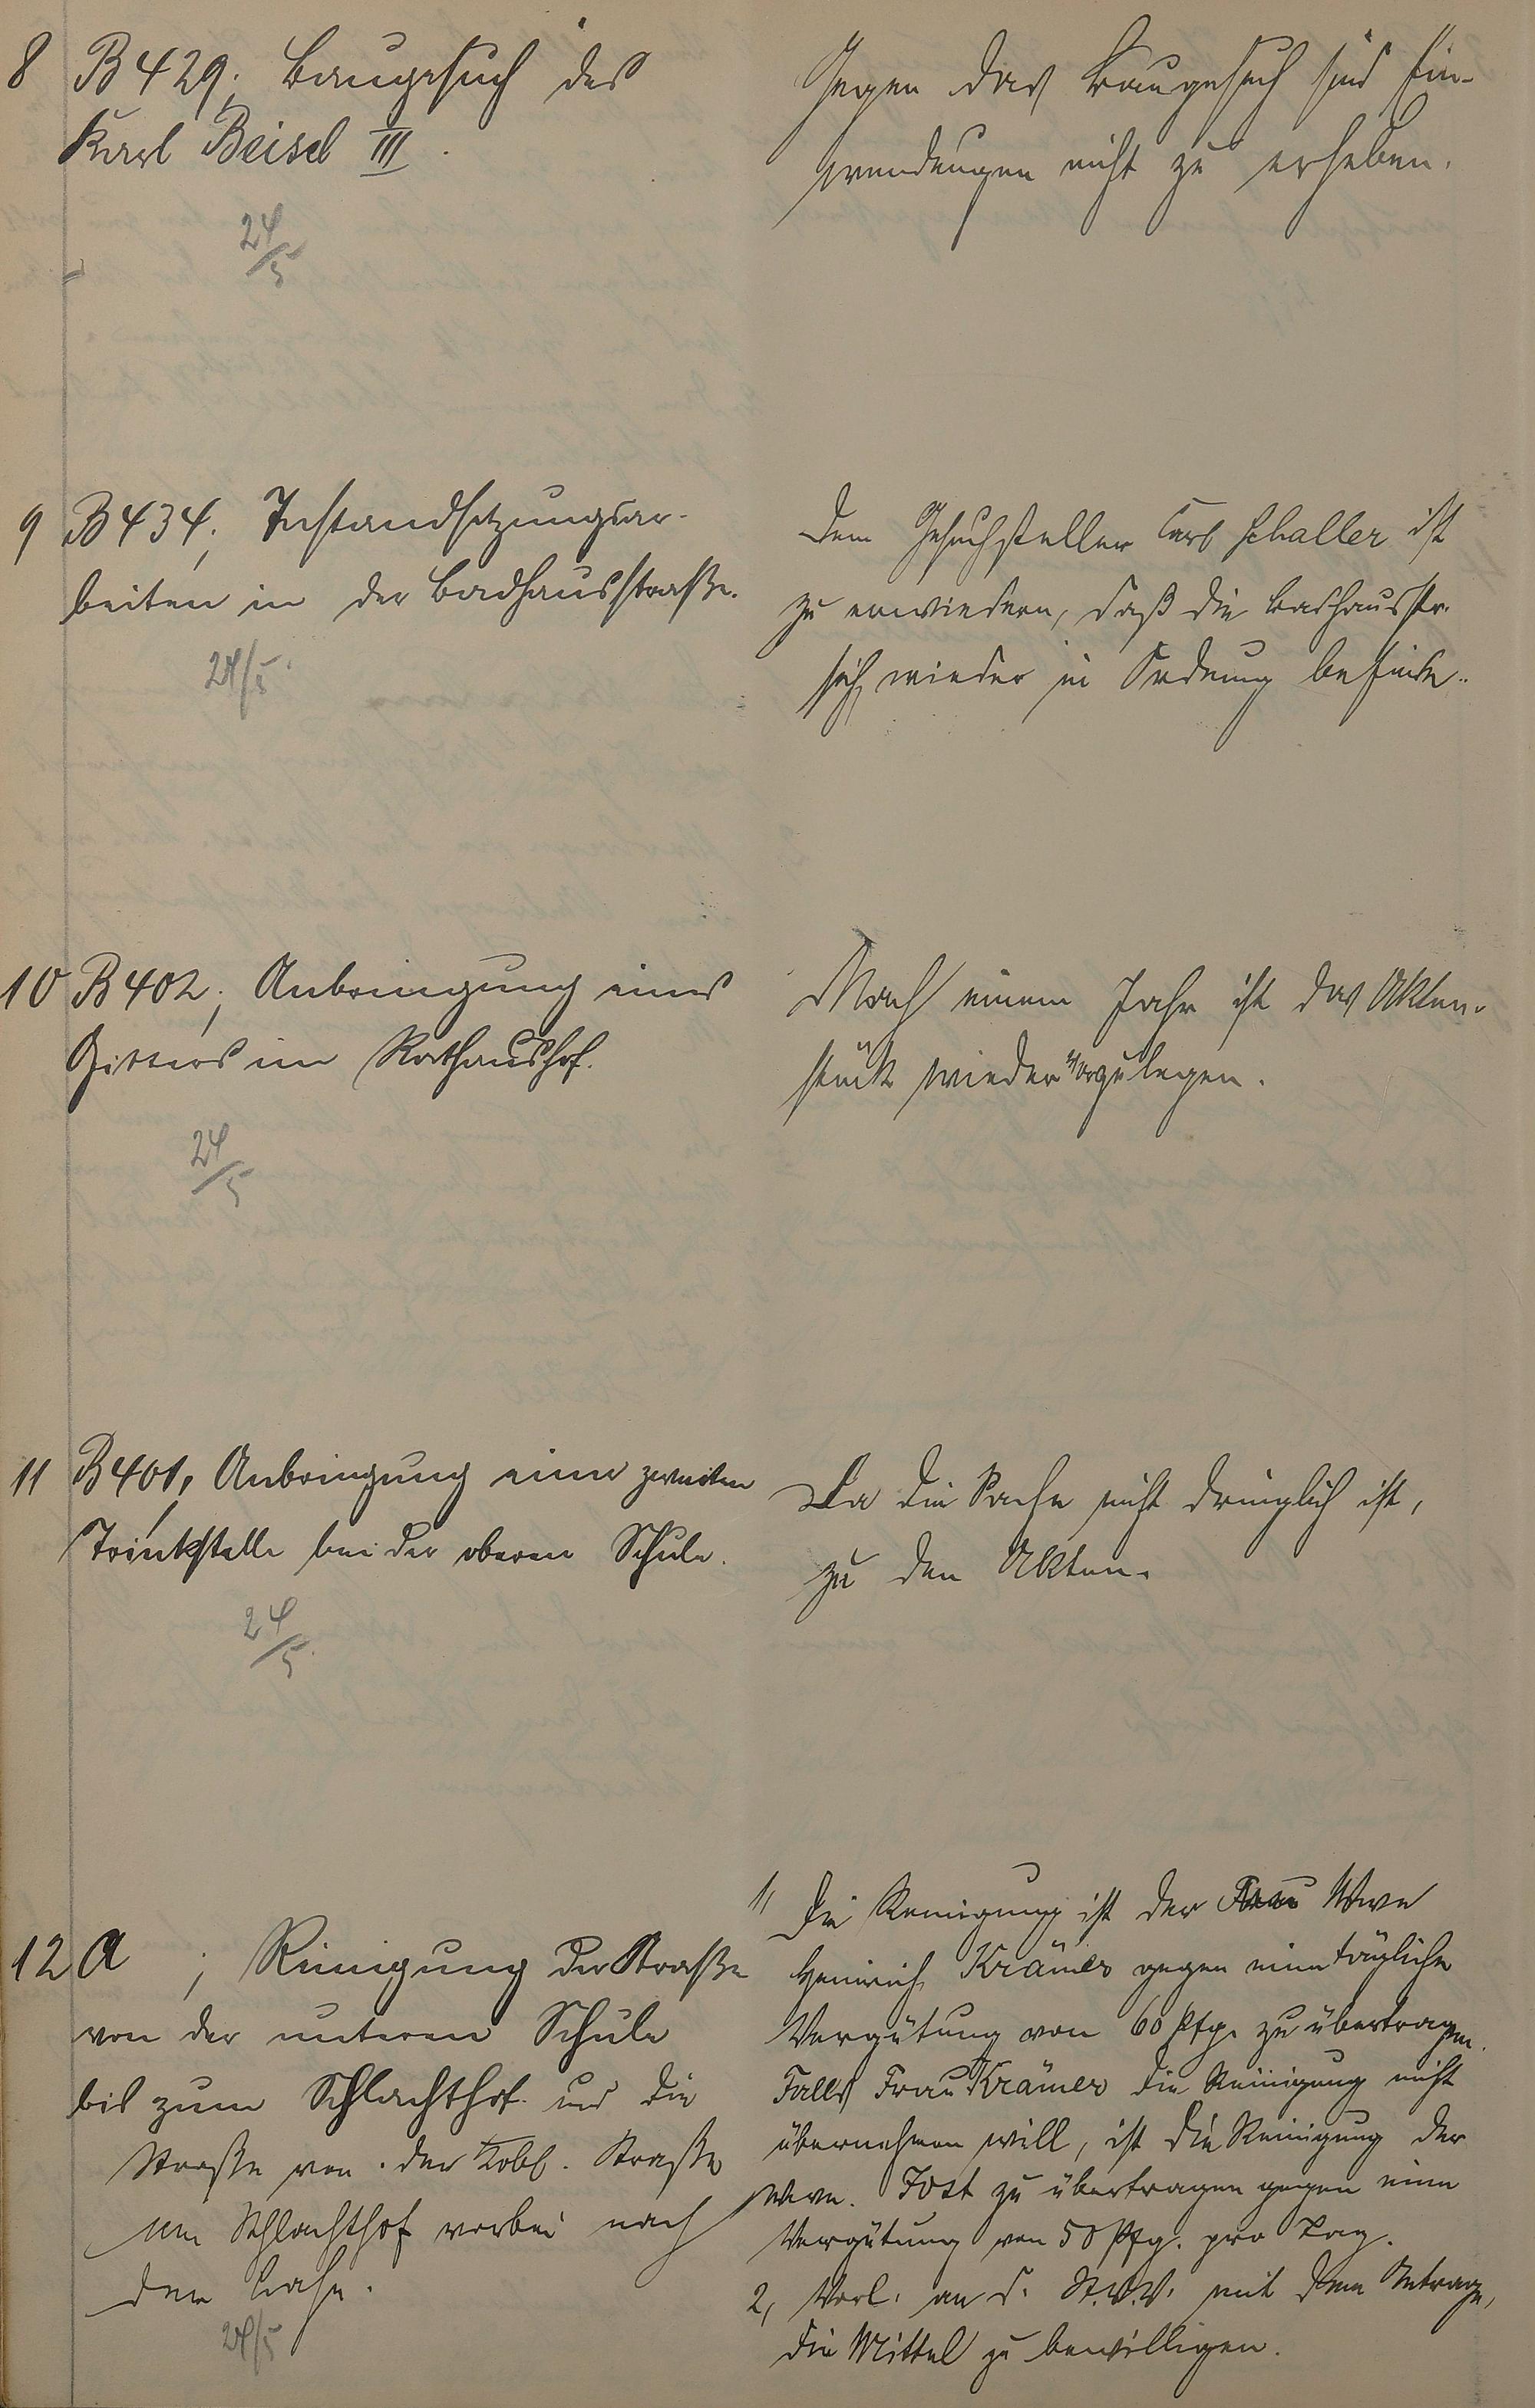 8 B 429; Baugesuch des
Karl Beisel III.
24/5
Gegen das Baugesuch sind Ein-
wendungen nicht zu erheben.
9 B 434; Instandsetzungsar-
beiten in der Badhausstraße.
24/5.
Dem Gesuchsteller Carl Schaller ist
zu erwiedern, daß die Badhausstr.
sich wieder in Ordnung befinde.
10 B 402; Anbringung eines
Gitters im Rathaushof.
24/5
Nach einem Jahr ist das Akten-
stück wieder vorzulegen.
11 B 401; Anbringung einer zweiten
Trinkstelle bei der oberen Schule.
24/5.
Da die Sache nicht dringlich ist,
zu den Akten.
12 A ; Reinigung der Straße
von der unteren Schule
bis zum Schlachthof und die
Straße von der Kobl. Straße
am Schlachthof vorbei nach
der Lahn.
24/5
1, Die Reinigung ist der Frau Wwe
Heinrich Krämer gegen eine tägliche
Vergütung von 60 Pfg. zu übertragen.
Falls Frau Krämer die Reinigung nicht
übernehmen will, ist die Reinigung der
Wwe. Jost zu übertragen gegen eine
Vergütung von 50 Pfg. pro Tag.
2, Vorl. an d. St.V.V. mit dem Antrage,
die Mittel zu bewilligen.